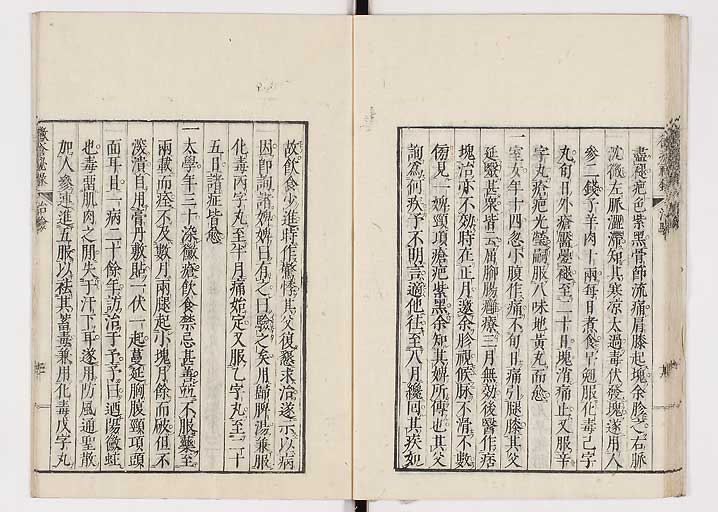 盡穩疤色紫黑骨節流痛肩膝起塊余胗之右脈
沈微左脈澀滯知其寒凉太過毒伏發塊遂用人
參二錢子羊肉十兩每日煮食早晚服化毒己字
九旬日外瘡靨變穩至二十日塊消痛止又服辛
字丸瘡疤光瑩嗣服八味地黃丸而愈
一室女年十四忽小腹作痛不旬日痛引腿膝其父
延醫甚衆皆云屬腳腸癰療三月無効後醫作痞
塊治亦不効時在正月邀余胗視候脉不滑不數
傍見一婢頸項瘡疤紫黑余知其婢所傳也其父
詢爲何疾予不明言適他往至八月纔回其疾如
故飲食少進時作驚悸其父復懇求治遂示以病
因即詢諸婢婢曰有之曰驗之矣用歸脾湯兼服
化毒丙字丸至半月痛始定又服乙字丸至二十
五日諸症皆愈
一太學年三十染黴瘡飲食禁忌甚善所不服藥至
兩載而痊不及數月兩腿起小塊月餘而破但不
潑潰自用膏丹敷貼一伏一起蔓延胸膜頸項頭
面耳目一病二十餘年訪治于予予曰迺陽黴蚛
也毒畱肌肉之間失于汗下耳遂用防風通聖散
加人參連進五服以祛其蓄毒兼用化毒戊字丸